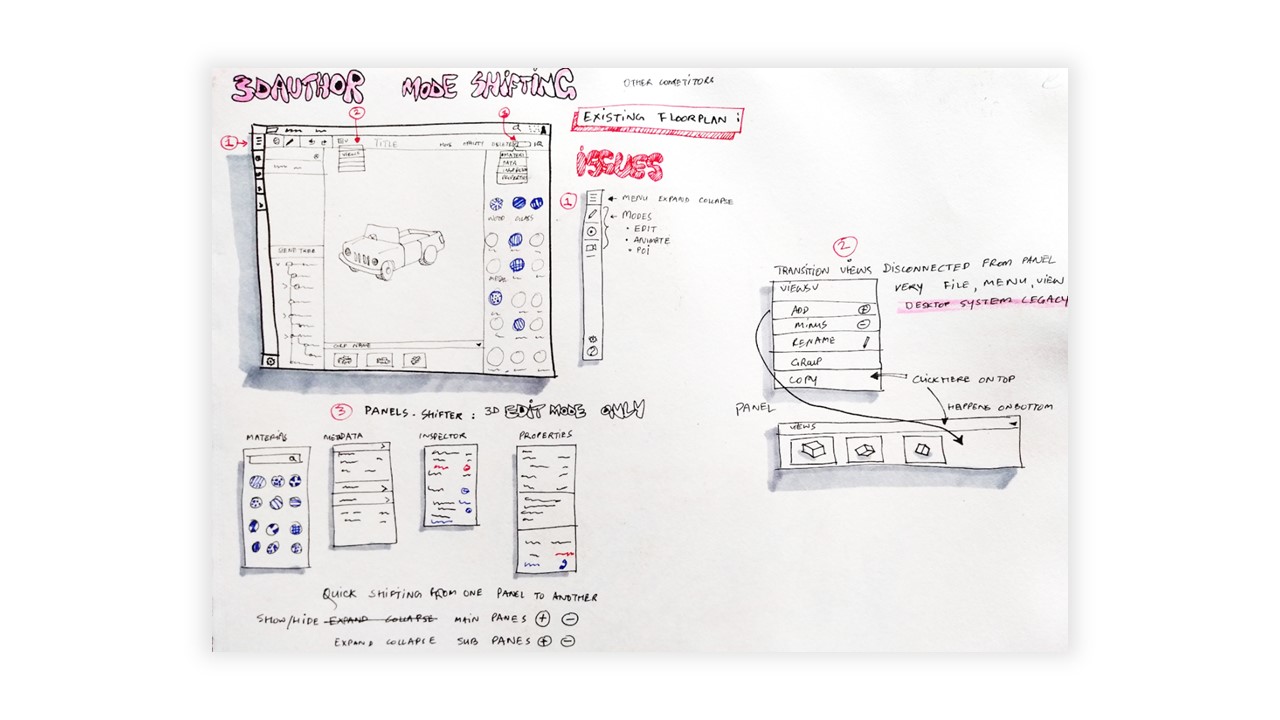 3DAUTHOR MODE SHIFTING
OTHER COMPETITORS
EXISTING FLOORPLAN :
ISSUES
1
2
TITLE
VIEWS
MATERI
DATA
PROPERTIE
WOOD GLASS
METAL
SCENE TREE
1
MENU EXPAND COLLAPSE
MODES
• EDIT
• ANIMATE
• POI
2
TRANSITION VIEWS DISCONNECTED FROM PANEL
VERY FILE, MENU, VIEW
DESKTOP SYSTEM LEGACY
VIEWS V
ADD +
MINUS −
RENAME
GROUP
COPY
CLICK HERE ON TOP
HAPPENS ON BOTTOM
PANEL
VIEWS
3 PANELS - SHIFTER : 3D EDIT MODE ONLY
MATERIALS
METADATA
INSPECTOR
PROPERTIES
QUICK SHIFTING FROM ONE PANEL TO ANOTHER
SHOW/HIDE EXPAND COLLAPSE MAIN PANES + −
EXPAND COLLAPSE SUB PANES + −